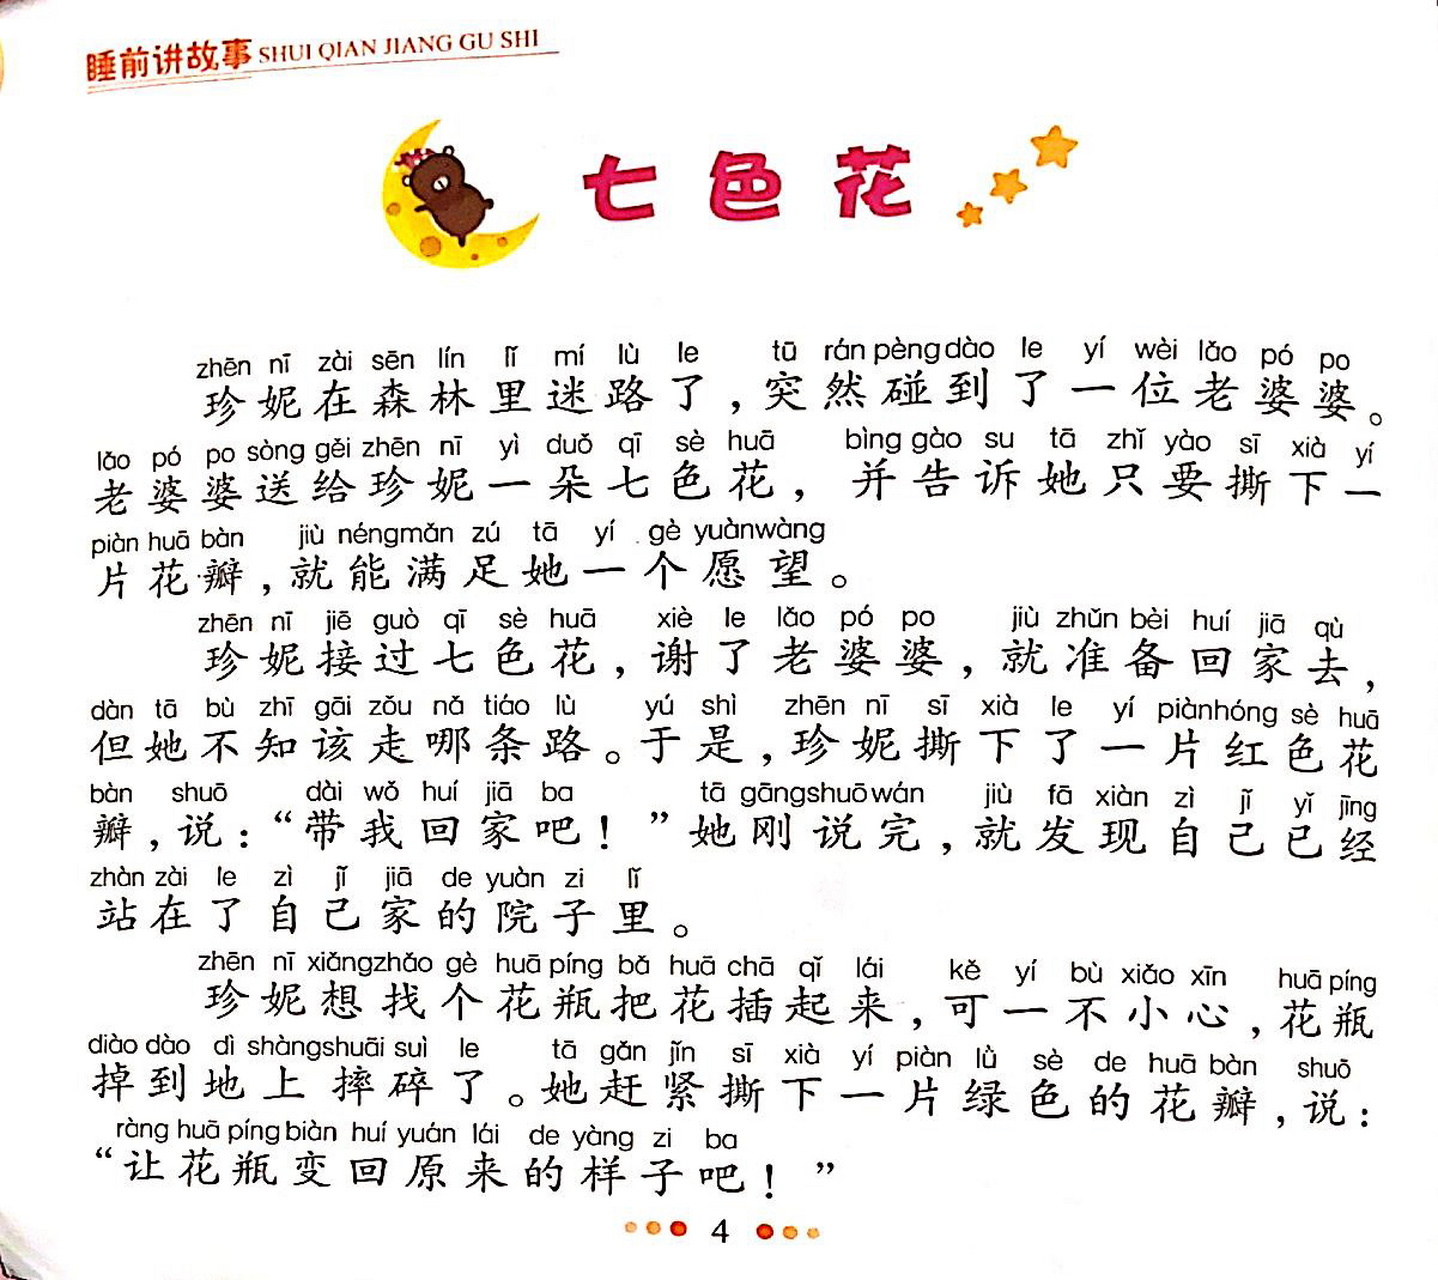 睡前讲故事 SHUI QIAN JIANG GU SHI
七色花
zhēn nī zài sēn lín lǐ mí lù le tū rán pèng dào le yí wèi lǎo pó po
珍妮在森林里迷路了，突然碰到了一位老婆婆。
lǎo pó po sòng gěi zhēn nī yì duǒ qī sè huā bìng gào su tā zhǐ yào sī xià yí
老婆婆送给珍妮一朵七色花，并告诉她只要撕下一
piàn huā bàn jiù néng mǎn zú tā yí gè yuàn wàng
片花瓣，就能满足她一个愿望。
zhēn nī jiē guò qī sè huā xiè le lǎo pó po jiù zhǔn bèi huí jiā qù
珍妮接过七色花，谢了老婆婆，就准备回家去，
dàn tā bù zhī gāi zǒu nǎ tiáo lù yú shì zhēn nī sī xià le yí piàn hóng sè huā
但她不知该走哪条路。于是，珍妮撕下了一片红色花
bàn shuō dài wǒ huí jiā ba tā gāng shuō wán jiù fā xiàn zì jǐ yǐ jīng
瓣，说：“带我回家吧！”她刚说完，就发现自己已经
zhàn zài le zì jǐ jiā de yuàn zi lǐ
站在了自己家的院子里。
zhēn nī xiǎng zhǎo gè huā píng bǎ huā chā qǐ lái kě yí bù xiǎo xīn huā píng
珍妮想找个花瓶把花插起来，可一不小心，花瓶
diào dào dì shàng shuāi suì le tā gǎn jǐn sī xià yí piàn lǜ sè de huā bàn shuō
掉到地上摔碎了。她赶紧撕下一片绿色的花瓣，说：
ràng huā píng biàn huí yuán lái de yàng zi ba
“让花瓶变回原来的样子吧！”
4